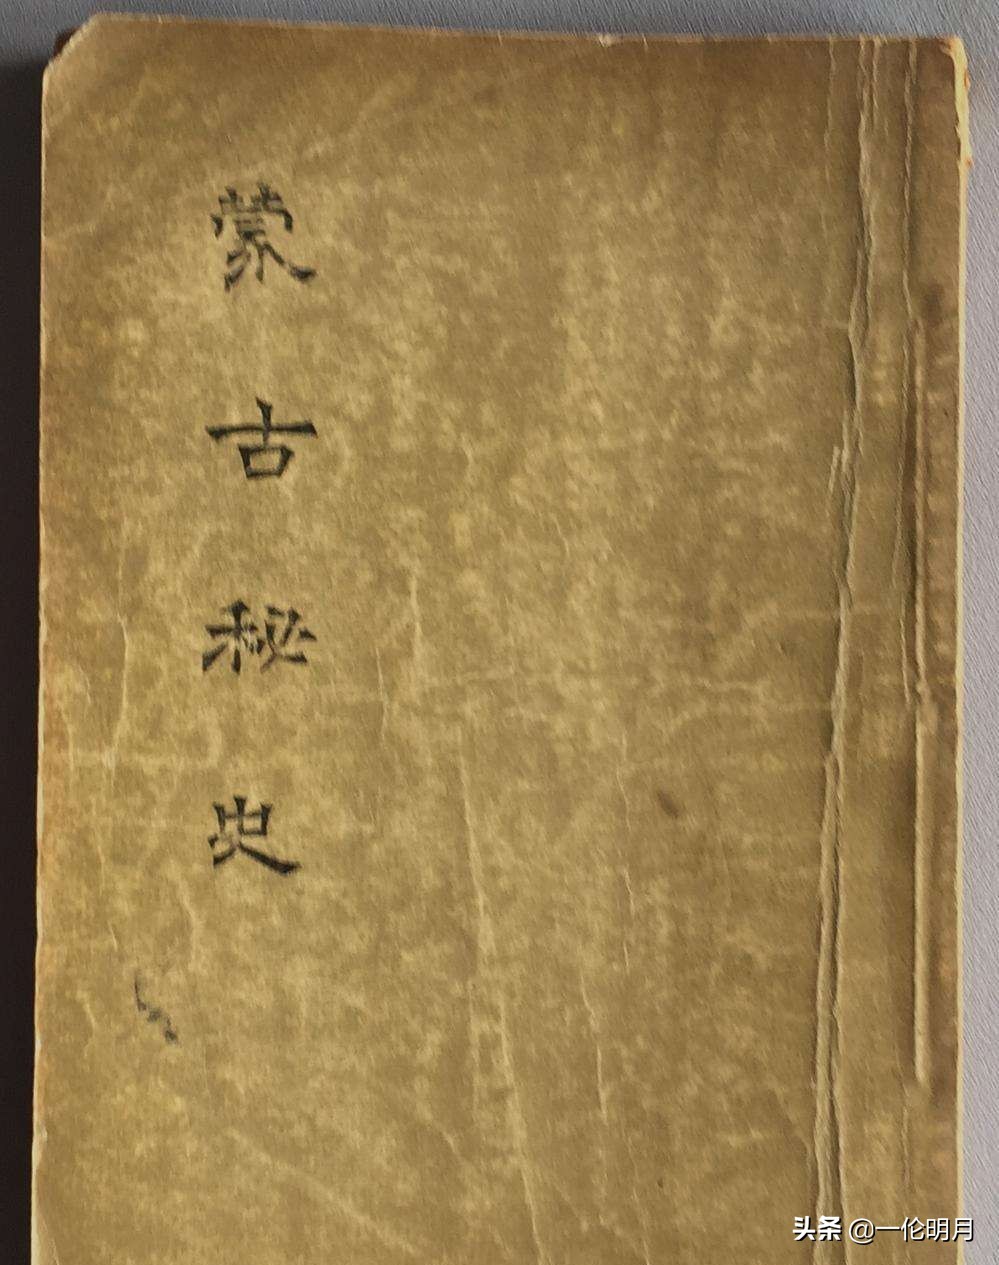 蒙古秘史
头条 @一伦明月